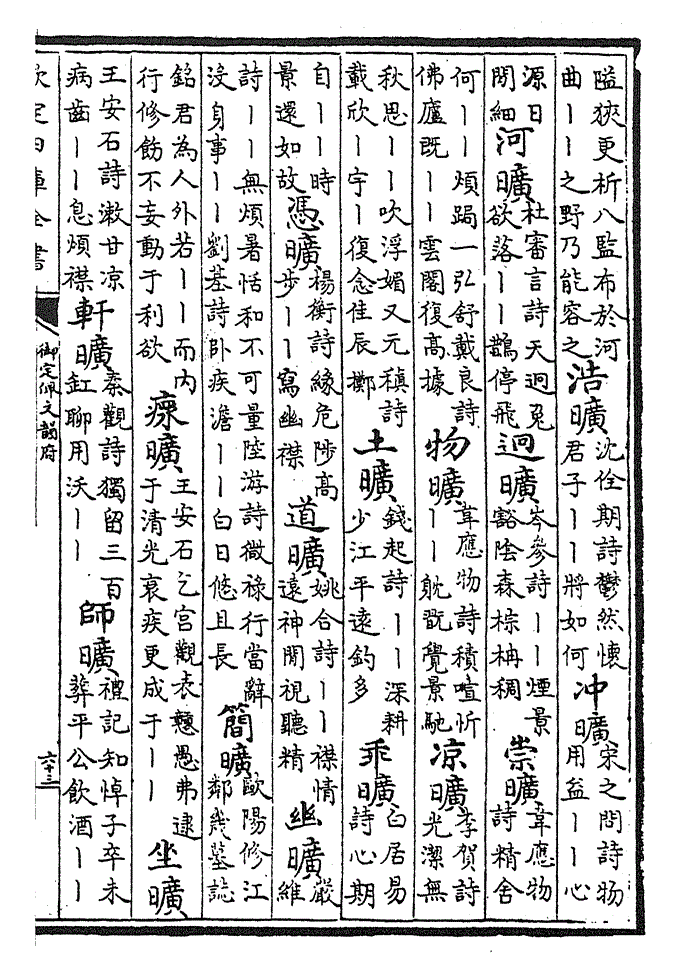 隘狹更析八監布於河
曲丨丨之野乃能容之
浩曠
沈佺期詩鬱然懷
君子丨丨將如何
冲曠
宋之問詩物
用益丨丨心
源日
閑細
河曠
杜審言詩天迥兔
欲落丨丨鵲停飛
迥曠
岑參詩丨丨煙景
豁陰森棕柟稠
崇曠
韋應物
詩精舍
何丨丨煩跼一弘舒戴良詩
佛廬既丨丨雲閣復高據
物曠
韋應物詩積喧忻
丨丨躭翫覺景馳
凉曠
李賀詩
光潔無
秋思丨丨吹浮媚又元稹詩
載欣丨宇丨復念佳辰擲
土曠
錢起詩丨丨深耕
少江平遠釣多
乖曠
白居易
詩心期
自丨丨時
景還如故
憑曠
楊衡詩緣危陟高
步丨丨寫幽襟
道曠
姚合詩丨丨襟情
遠神閒視聽精
幽曠
嚴
維
詩丨丨無煩暑恬和不可量陸游詩微祿行當辭
没身事丨丨劉基詩卧疾澹丨丨白日悠且長
簡曠
歐陽修江
鄰幾墓誌
銘君為人外若丨丨而内
行修飭不妄動于利欲
瘝曠
王安石乞宫觀表戇愚弗逮
于清光衰疾更成于丨丨
坐曠
王安石詩漱甘凉
病齒丨丨息煩襟
軒曠
秦觀詩獨留三百
缸聊用沃丨丨
師曠
禮記知悼子卒未
葬平公飲酒丨丨
欽定四庫全書
御定佩文韻府
六十三